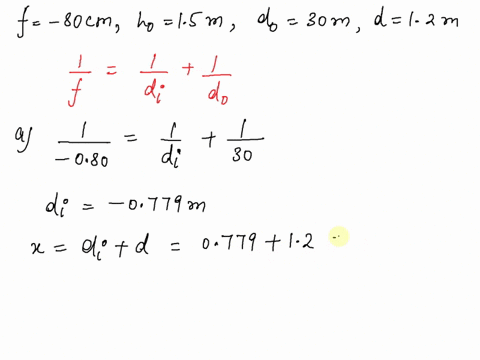 f = -80 cm, h₀ = 1.5 m, d₀ = 30 m, d = 1.2 m
1/f = 1/dᵢ + 1/d₀
a) 1/-0.80 = 1/dᵢ + 1/30
dᵢ = -0.779 m
x = dᵢ + d = 0.779 + 1.2